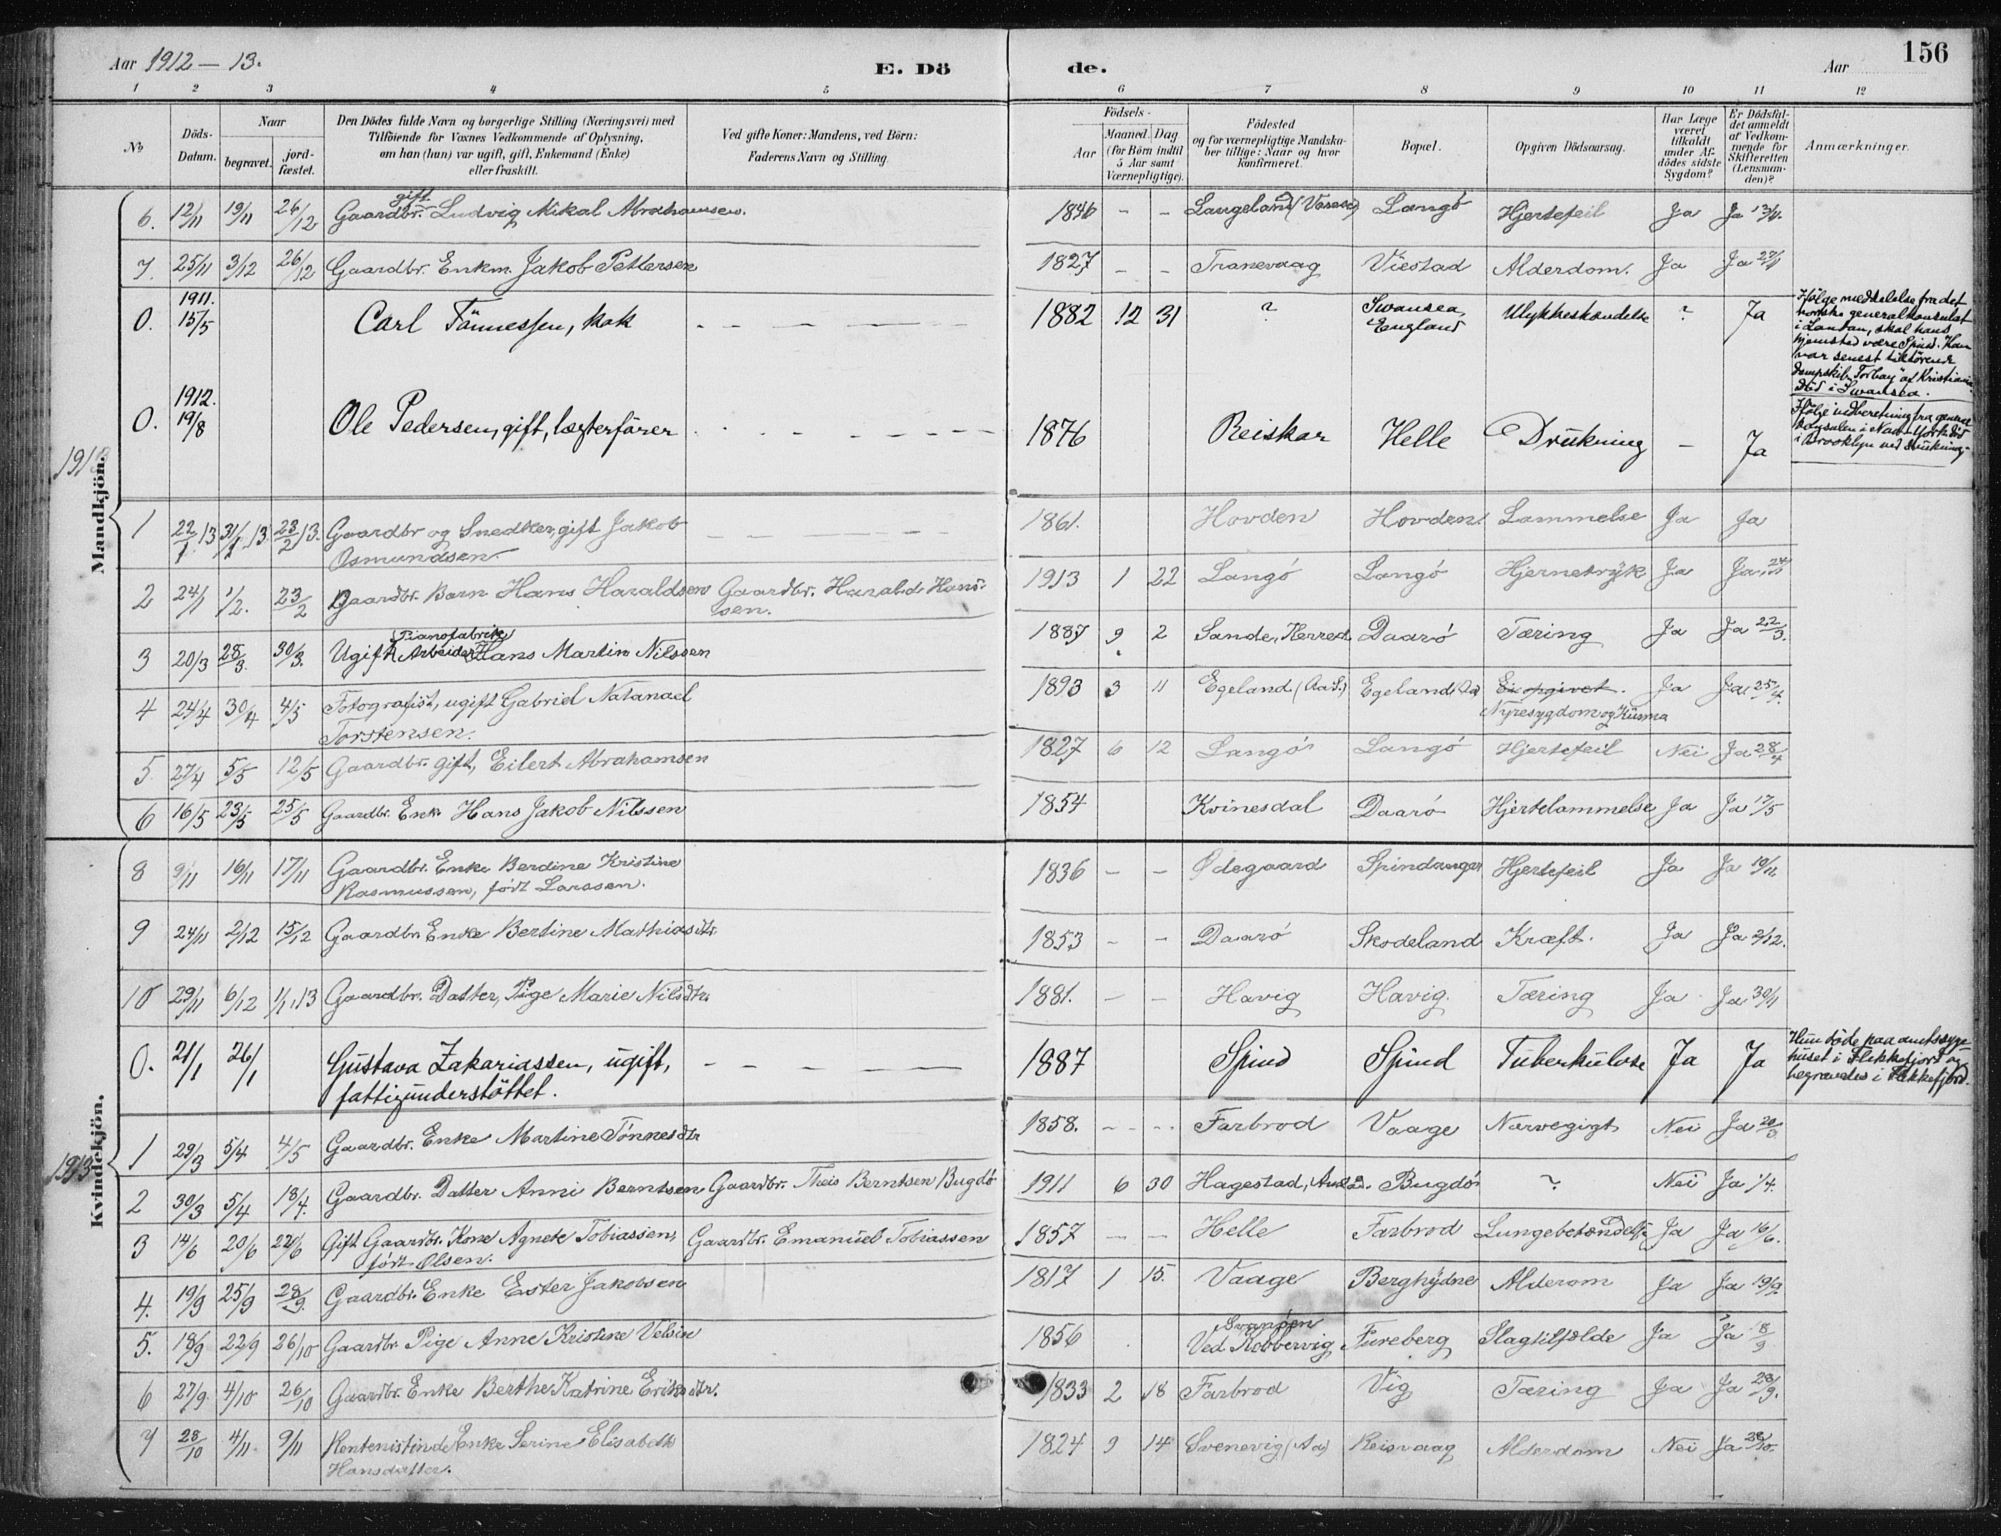 Aar 1912 — 13.
E. Dö
de.
Aar
156
1 2 3 4 5 6 7 8 9 10 11 12
No
Döds-Datum.
Naar
begravet.
jord-fæstet.
Den Dödes fulde Navn og borgerlige Stilling (Næringsvei) med
Tilföiende for Voxnes Vedkommende af Oplysning,
om han (hun) var ugift, gift, Enkemand (Enke)
eller fraskilt.
Ved gifte Koner: Mandens, ved Börn:
Faderens Navn og Stilling.
Födsels-
Aar
Maaned. Dag
(for Börn indtil
5 Aar samt
Værnepligtige).
Födested
og for værnepligtige Mandska-
ber tillige: Naar og hvor
konfirmeret.
Bopæl.
Opgiven Dödsaarsag.
Har Læge
været
tilkaldt
under Af-
dödes sidste
Sygdom?
Er Dödsfal-
det anmeldt
af Vedkom-
mende for
Skifteretten
(Lensman-
den)?
Anmærkninger.
Mandkjön.
6. 12/11 19/11 26/12 Gaardbr. gift Ludvig Mikal Abrahamsen. 1846 - - Langeland Langö Hjertefeil Ja Ja 13/11.
7. 25/11 3/12 26/12 Gaardbr. Enkm. Jakob Pettersen 1827 - - Tranevaag Viestad Alderdom. Ja Ja 27/11
0. 1911. 15/5 Carl Tönnessen, kok - - - - 1882 12 31 ? Swansea, England Ulykkeshændelse ? Ja
Ifölge meddelelse fra det
norske generalkonsulat
i London, skal hans
hjemsted være Spind. Han
var senest tilhörende
dampskib "Torbay" af Kristiania
Död i Swansea.
0. 1912. 19/8 Ole Pedersen, gift, lægterförer - - - - 1876 Reiskar Helle Drukning - Ja
Ifölge indberetning fra general
konsulen i New-York död
i Brooklyn ved drukning.
1 22/1.13 31/1.13. 23/2 13. Gaardbr og Snedker, gift Jakob
Osmundsen. - - - 1861. Hovden Hovden. Lammelse Ja Ja
2 24/1 1/2. 23/2 Gaardbr. Barn Hans Haraldsen Gaardbr. Harald Hansen. 1913 1 22 Langö Langö Hjernetryk Ja Ja 24/1
3 20/3 28/3. 30/3. Ugift Pianofabrik Arbeider Hans Martin Nilssen 1887 9 2 Sande, Herred Daarö Tæring Ja Ja 22/3.
4 24/4 30/4 4/5 Fotografist, ugift Gabriel Natanael
Torstensen. 1893 3 11 Egeland Egeland Ei opgivet.
Nyresygdom og Ja Ja 25/4.
5. 27/4 5/5 12/5 Gaardbr. gift, Eilert Abrahamsen 1827 6 12 Langö Langö Hjertefeil Nei Ja 28/4
6 16/5 23/5 25/5 Gaardbr. Enk. Hans Jakob Nilssen 1854 Kvinesdal Daarö Hjertelammelse Ja Ja 17/5
Kvindekjön.
8 9/11 16/11 17/11 Gaardbr. Enke Berdine Kristine
Rasmussen, født Larssen. 1836 - - Ødegaard Spindanger Hjertefeil Ja Ja 19/11.
9 24/11 2/12 15/12 Gaardbr. Enke Bertine Mathiasdtr. 1853 - - Daarö Skodeland Kræft. Ja Ja 2/12.
10 29/11 6/12 1/1.13 Gaardbr. Datter, Pige Marie Nilsdtr. 1881. - - Havig Havig. Tæring Ja Ja 30/11
0. 21/1 26/1 Gustava Zakariassen, ugift,
fattigunderstöttet. - - - - 1887 Spind Spind Tuberkulose Ja Ja
Hun döde paa amtssyge-
huset i Flekkefjord og
begravedes i Flekkefjord.
1913
1 29/3 5/4 4/5 Gaardbr. Enke Martine Tönnesdtr 1858. - - Farbrod Vaage Nervegigt Nei Ja
2 30/3 5/4 18/4. Gaardbr. Datter Anni Berntsen Gaardbr. Theis Berntsen Bugdö 1911 6 30 Hagestad, Bugdö ? Nei Ja 1/4.
3 14/6 20/6 22/6 Gift Gaardbr. Kone Agnete Tobiassen,
født Olsen. Gaardbr. Emanuel Tobiassen 1857 - - Helle Farbrod Lungebetændelse Ja Ja 16/6.
4. 19/9 25/9 28/9. Gaardbr. Enke Ester Jakobsen 1817 1 15. Vaage Berghydne Alderom Ja Ja 19/9
5. 18/9 22/9 26/10 Gaardbr. Pige Anne Kristine 1856 Ved Kobbervig Fureberg Slagtilfælde Ja Ja
6 27/9 4/10 26/10 Gaardbr. Enke Berthe Katrine Eriksdtr. 1833 2 18 Farbrod Vig Tæring Ja Ja 28/9.
7 28/10 4/11. 9/11 Rentenistinde Enke Serine Elisabeth
Hansdatter. 1824 9 14 Svenevig Reisvaag Alderdom Nei Ja